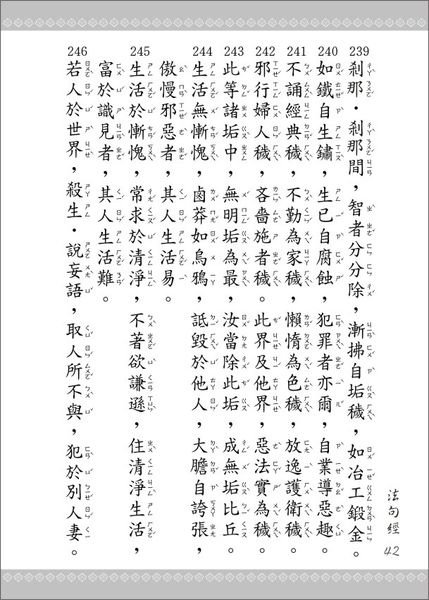 239 剎那·剎那間，智者分分除，漸拂自垢穢，如冶工鍛金。
240 如鐵自生鏽，生已自腐蝕，犯罪者亦爾，自業導惡趣。
241 不誦經典穢，不勤為家穢，懶惰為色穢，放逸護衛穢。
242 邪行婦人穢，吝嗇施者穢。此界及他界，惡法實為穢。
243 此等諸垢中，無明垢為最，汝當除此垢，成無垢比丘。
244 生活無慚愧，鹵莽如烏鴉，詆毀於他人，大膽自誇張，
傲慢邪惡者，其人生活易。
245 生活於慚愧，常求於清淨，不著欲謙遜，住清淨生活，
富於識見者，其人生活難。
246 若人於世界，殺生·說妄語，取人所不與，犯於別人妻。
法句經 42